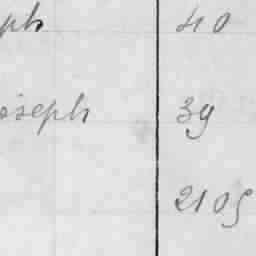 ph 40
oseph 39
2109